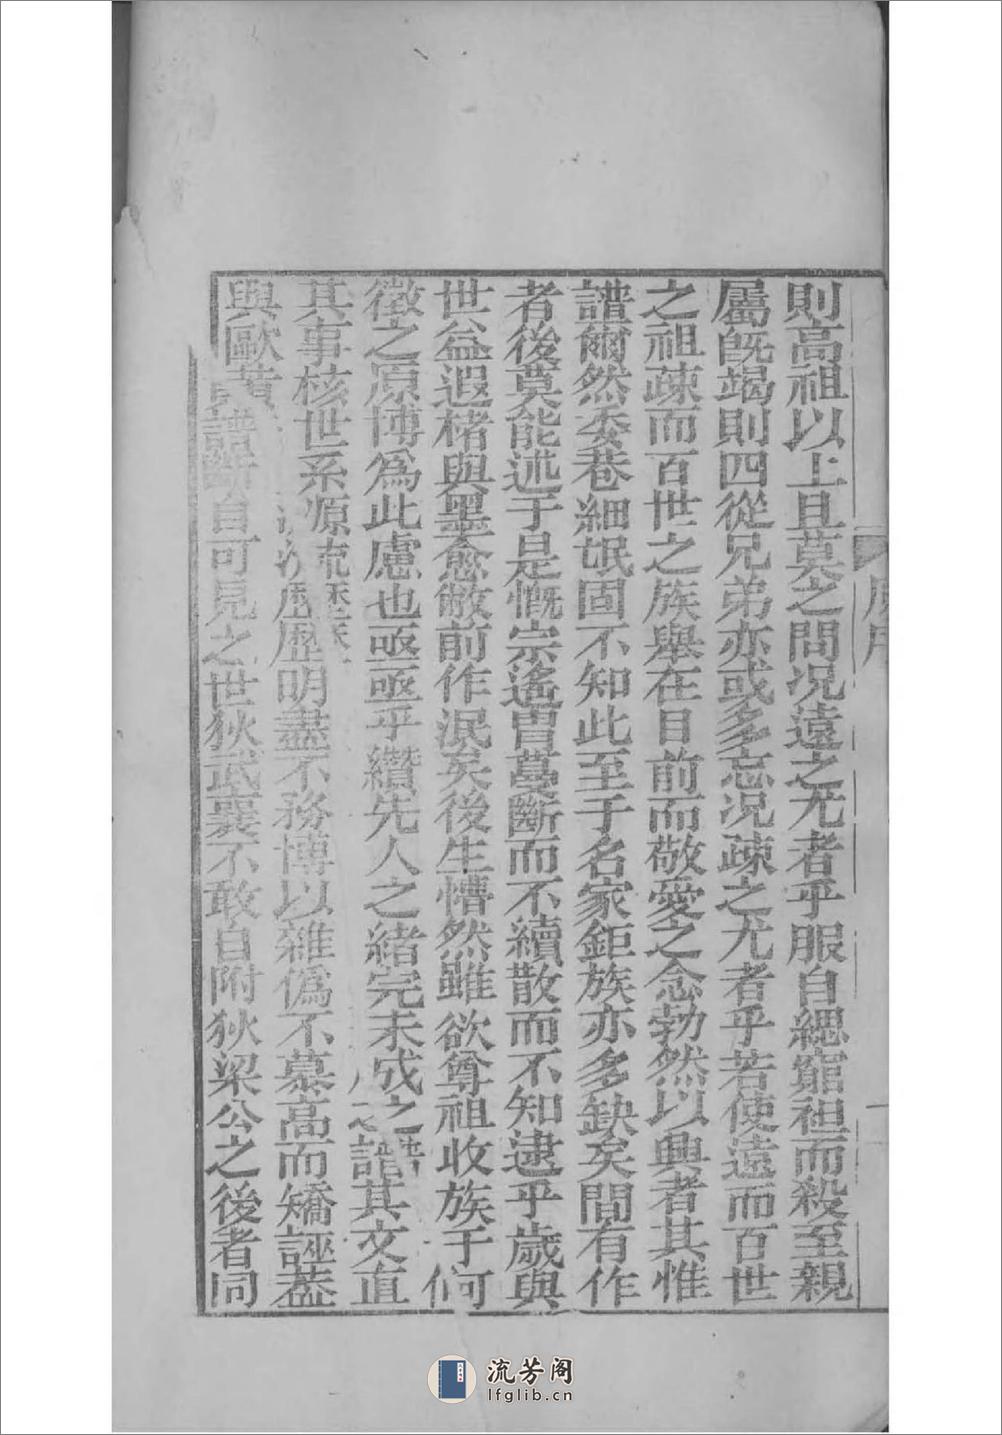 則高祖以上且莫之問况遠之尤者乎服自緦窮袒而殺至親
屬旣竭則四從兄弟亦或多忘况疎之尤者乎若使遠而百世
之祖疎而百世之族舉在目前而敬愛之念勃然以興者其惟
譜爾然委巷細氓固不知此至于名家鉅族亦多缺矣間有作
者後莫能述于是慨宗遙胄蔓斷而不續散而不知逮乎歲與
世益遐楮與墨愈敝前作泯矣後生懵然雖欲尊祖收族于何
徵之原博爲此慮也亟亟乎纘先人之緒完未成之譜其文直
其事核世系源流歷歷明盡不務博以雜僞不慕高而矯誣葢
與歐黃譜自可見之世狄武襄不敢自附狄梁公之後者同
序
一
流芳阁
lfglib.cn